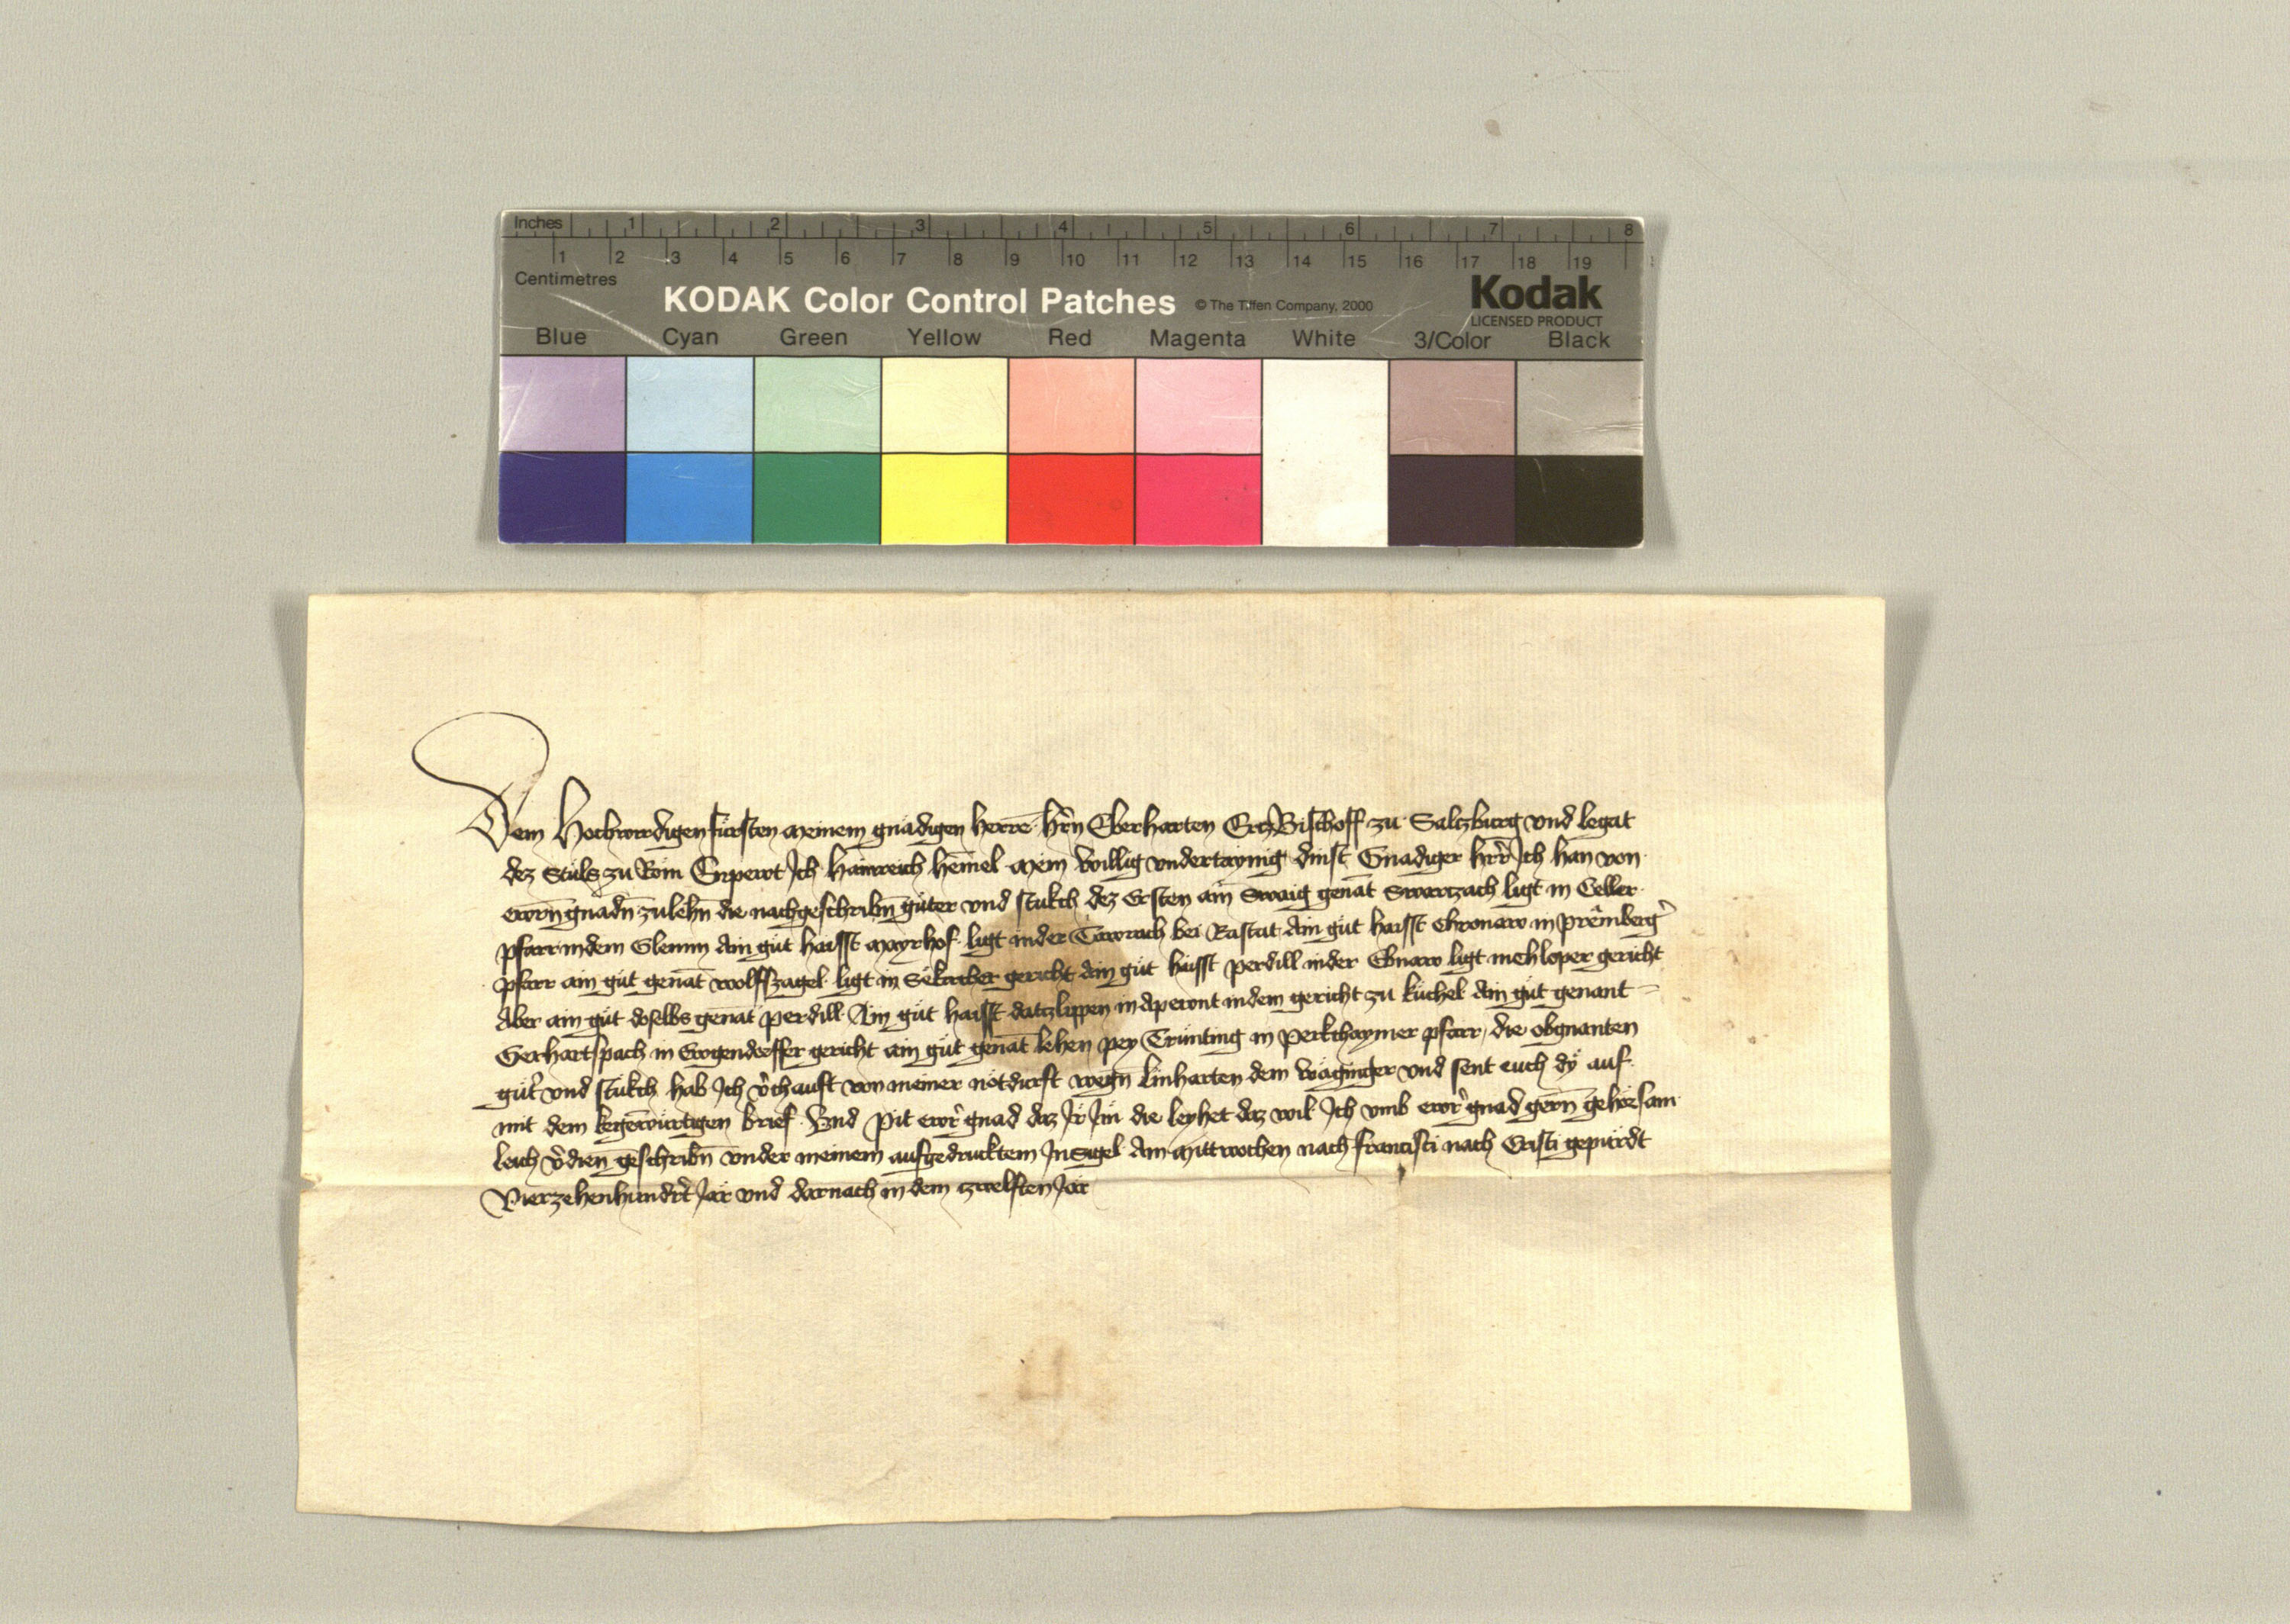 Inches 1 2 3 4 5 6 7 8
1 2 3 4 5 6 7 8 9 10 11 12 13 14 15 16 17 18 19
Centimetres
KODAK Color Control Patches © The Tiffen Company, 2000 Kodak
LICENSED PRODUCT
Blue Cyan Green Yellow Red Magenta White 3/Color Black
Dem Hochwirdigen fürsten meinem gnädigen herrē hr̄n Eberharten ErczBischoff zu Salczburg vnd legat
dez Stüls zu Röm Enpewt Ich Hainreich hēmel mein willig vndertaynig dinst Gnadiger hr̄r Ich han von
ewrn̄ gnadn̄ zulehn̄ die nachgeschribn̄ güter vnd stukch dez Ersten ain Swaig genāt Swartzach ligt in Celler
pfarr indem Glemm Ain güt haisst Mayrhof ligt inder bei Rastat Ain güt haisst Chronaw in
pfarr ain güt genāt wolffzagel ligt in gericht Ain güt haisst perdill inder Ebnaw ligt gericht
Aber ain güt doselbs genāt perdill Ain güt haisst datzlippen in indem gericht zu küchel Ain güt genant
Gerhartspach in gericht ain güt genāt lehen pey Trünting in perkchaymer pfarr, die obgnanten
güt̄ vnd stukch hab Ich v̄chauft von meiner nötdurft wegn̄ Linharten dem wäginger vnd sent euch dÿ auf
mit dem kegēwürtigen brief Vnd pit ewr̄ gnad daz Ir Im die leyhet daz wil Ich vmb ewr̄ gnad gern̄ gehörsam
leich v̄dien̄ geschribn̄ vnder meinem aufgedrucktem Insigel Am Mittwochen nach francisci nach Cristi gepürdt
Vierzehenhundr̄t Jar vnd darnach in dem zwelften Jar